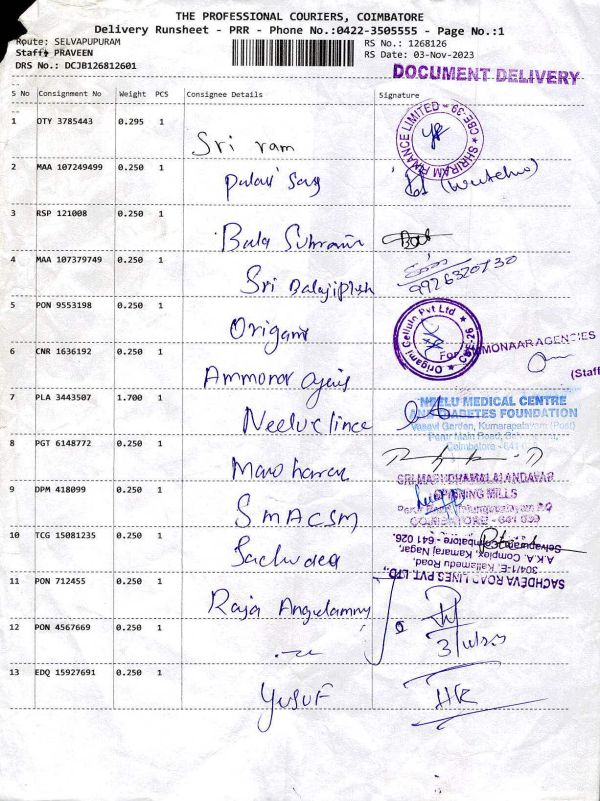 THE PROFESSIONAL COURIERS, COIMBATORE
Delivery Runsheet - PRR - Phone No.:0422-3505555 - Page No.:1
Route: SELVAPUPURAM
RS No.: 1268126
Staff: PRAVEEN
RS Date: 03-Nov-2023
DRS No.: DCJB126812601
DOCUMENT DELIVERY
S No Consignment No Weight PCS Consignee Details Signature
1 OTY 3785443 0.295 1 Sri ram
SHRIRAM FINANCE LIMITED - 39 - CBE
2 MAA 107249499 0.250 1
3 RSP 121008 0.250 1 Bala
4 MAA 107379749 0.250 1 Sri
9926320730
5 PON 9553198 0.250 1 Origami
Origami Cellulo Pvt Ltd CBE-26
For AMMONAAR AGENCIES
(Staff
6 CNR 1636192 0.250 1
7 PLA 3443507 1.700 1
NEELU MEDICAL CENTRE
AND DIABETES FOUNDATION
Vasavi Garden, Kumarapalayam (Post)
Perur Main Road,
Coimbatore - 641
8 PGT 6148772 0.250 1
9 DPM 418099 0.250 1 SMACSM
SPINNING MILLS
10 TCG 15081235 0.250 1
SACHDEVA ROAD LINES PVT. LTD.,
304/1-E, Kallamedu Road,
A.K.A. Complex, Kamaraj Nagar,
Selvapuram, Coimbatore - 641 026.
11 PON 712455 0.250 1 Raja
12 PON 4567669 0.250 1
13 EDQ 15927691 0.250 1 YUSUF